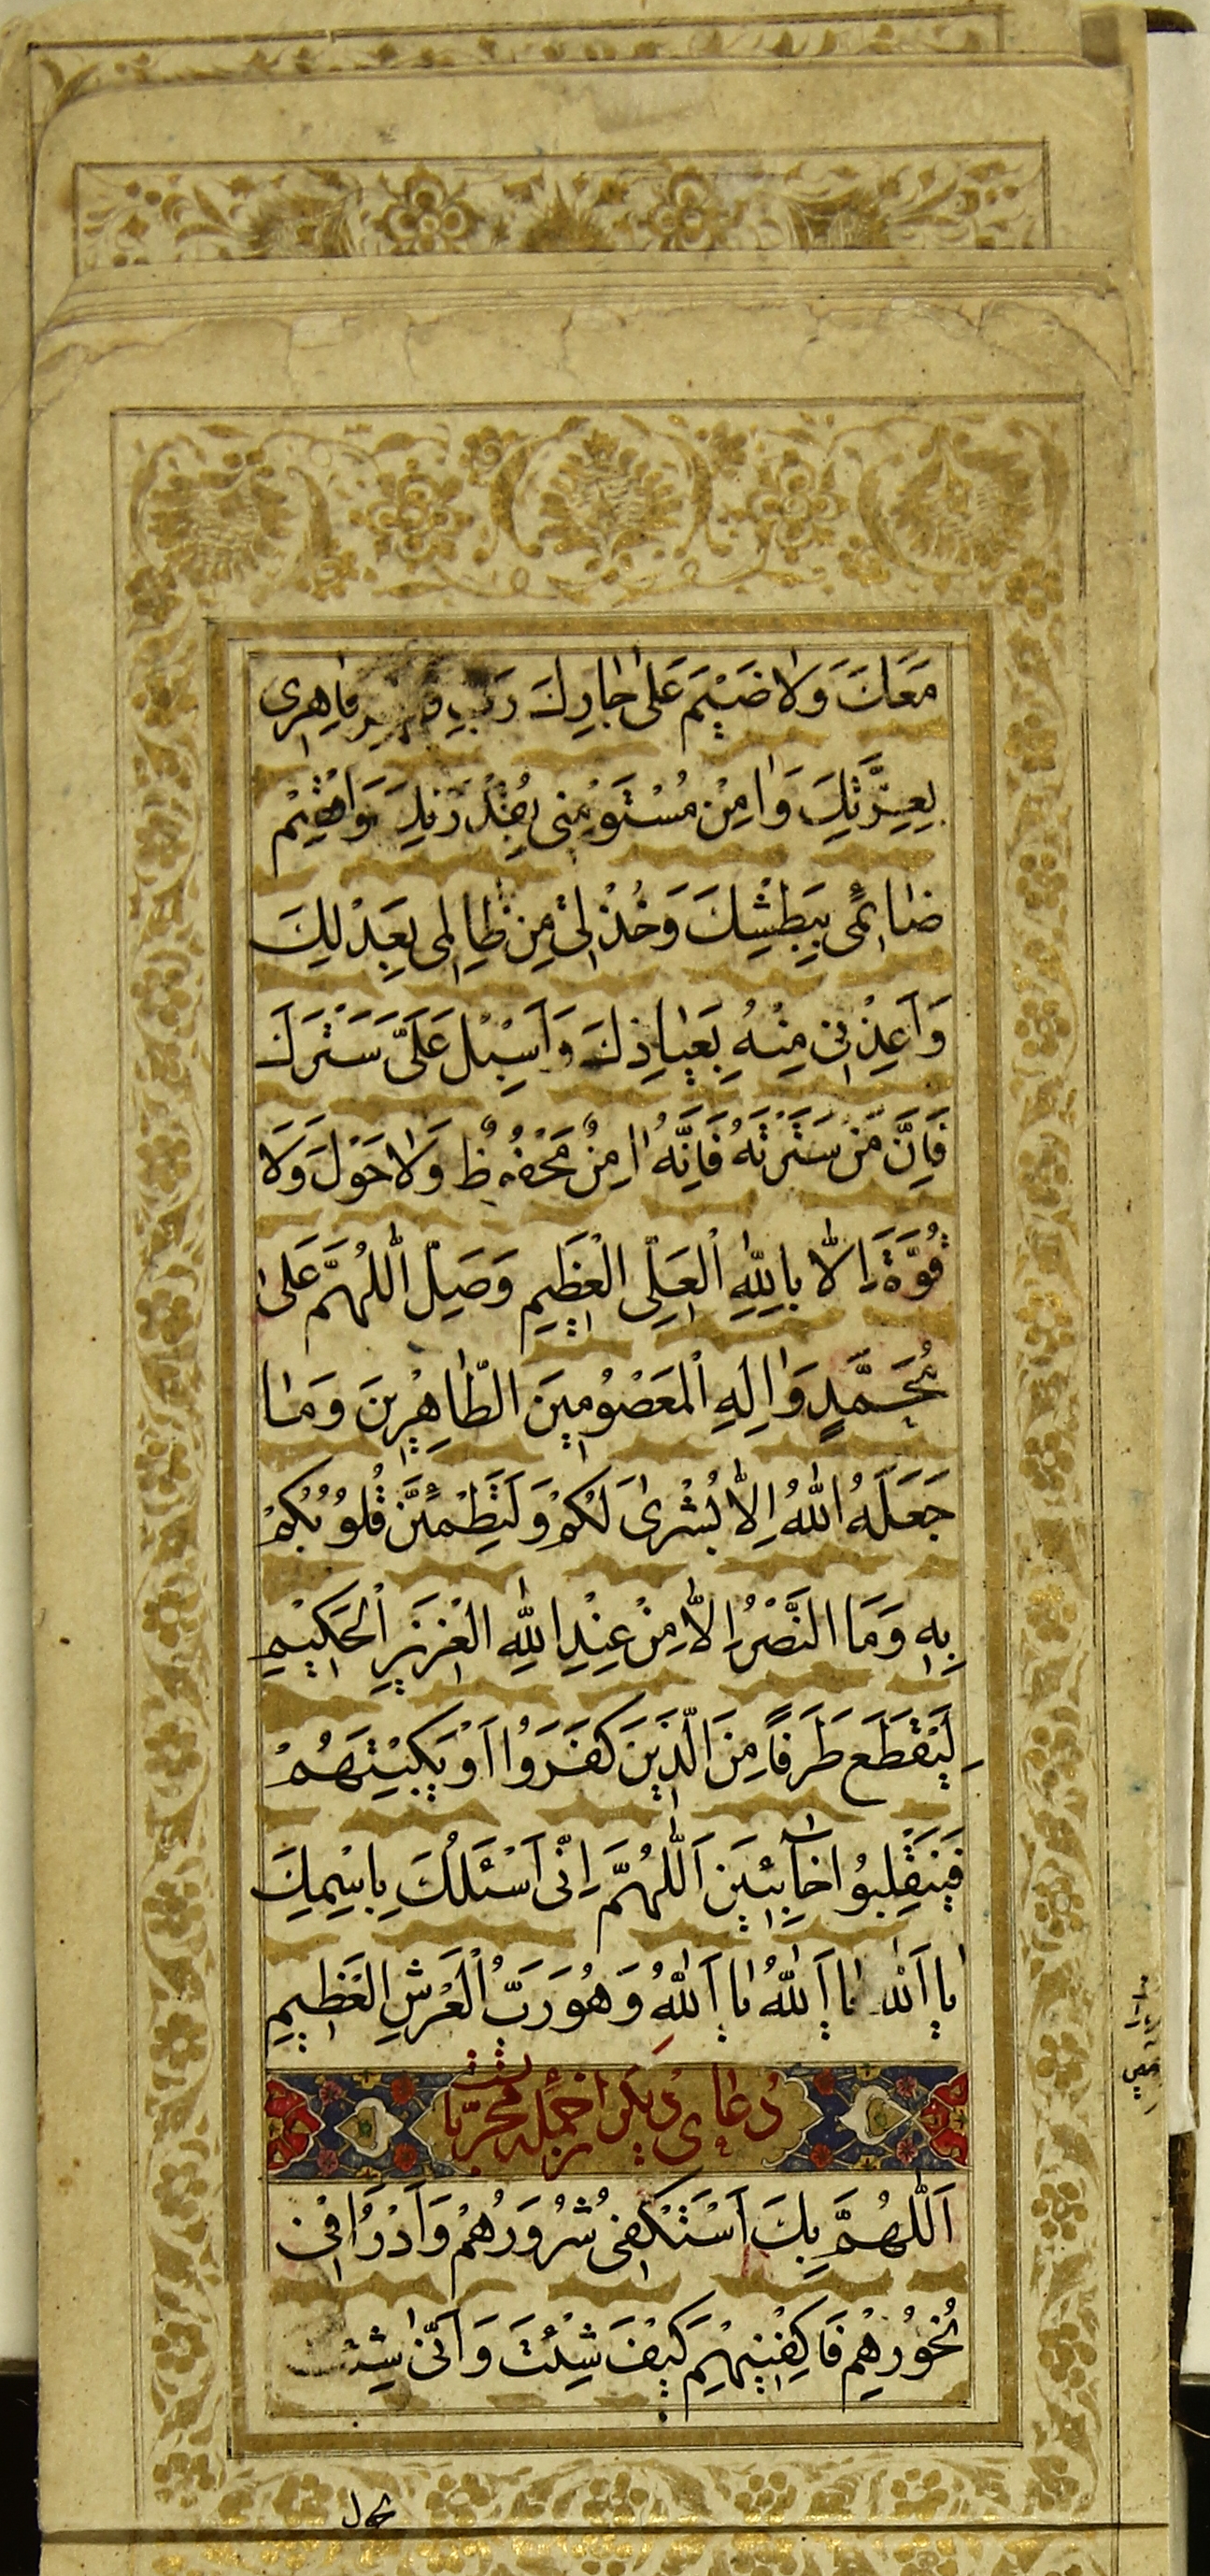 مَعَكَ وَلاٰ ضَيْمَ عَلىٰ جٰارِكَ رَبِّ قاهِرى
بِعِزَّتِكَ وَاٰمِنْ مُسْتَوْمِنى بِقُدْرَتِكَ وَاقْصِمْ
ضٰائمى بِبَطْشِكَ وَخُذْ لى مِنْ ظٰالِمى بِعَدْلِكَ
وَاَعِذْنى مِنْهُ بِعِيٰاذِكَ وَاَسْبِلْ عَلَىَّ سَتْرَكَ
فَاِنَّ مَنْ سَتَرْتَهُ فَاِنَّهُ اٰمِنٌ مَحْفُوظٌ وَلاٰ حَوْلَ وَلاَ
قُوَّةَ اِلاّٰ بِاللّٰهِ الْعَلِىِّ الْعَظِيمِ وَصَلِّ اللّٰهُمَّ عَلىٰ
مُحَمَّدٍ وَاٰلِهِ الْمَعْصُومِينَ الطّٰاهِرِينَ وَمٰا
جَعَلَهُ اللّٰهُ اِلاّٰ بُشْرىٰ لَكُمْ وَلِتَطْمَئِنَّ قُلُوبُكُمْ
بِهِ وَمَا النَّصْرُ اِلاّٰ مِنْ عِنْدِ اللّٰهِ الْعَزِيزِ الْحَكِيْمِ
لِيَقْطَعَ طَرَفاً مِنَ الَّذِينَ كَفَرُوا اَوْ يَكْبِتَهُمْ
فَيَنْقَلِبُوا خٰائِبِينَ اَللّٰهُمَّ اِنّى اَسْئَلُكَ بِاسْمِكَ
يٰا اَللّٰه يٰا اَللّٰهُ يٰا اَللّٰهُ وَهُوَ رَبُّ الْعَرْشِ الْعَظِيمِ
دُعٰاى ديكر از جمله مجرّبات
اَللّٰهُمَّ بِكَ اَسْتَكْفى شُرُوَرهُمْ وَاَدْرَوُا فى
نُحُورِهِمْ فَاكْفِنِيهِمْ كَيْفَ شِئْتَ وَاَنّىٰ شِئْتَ